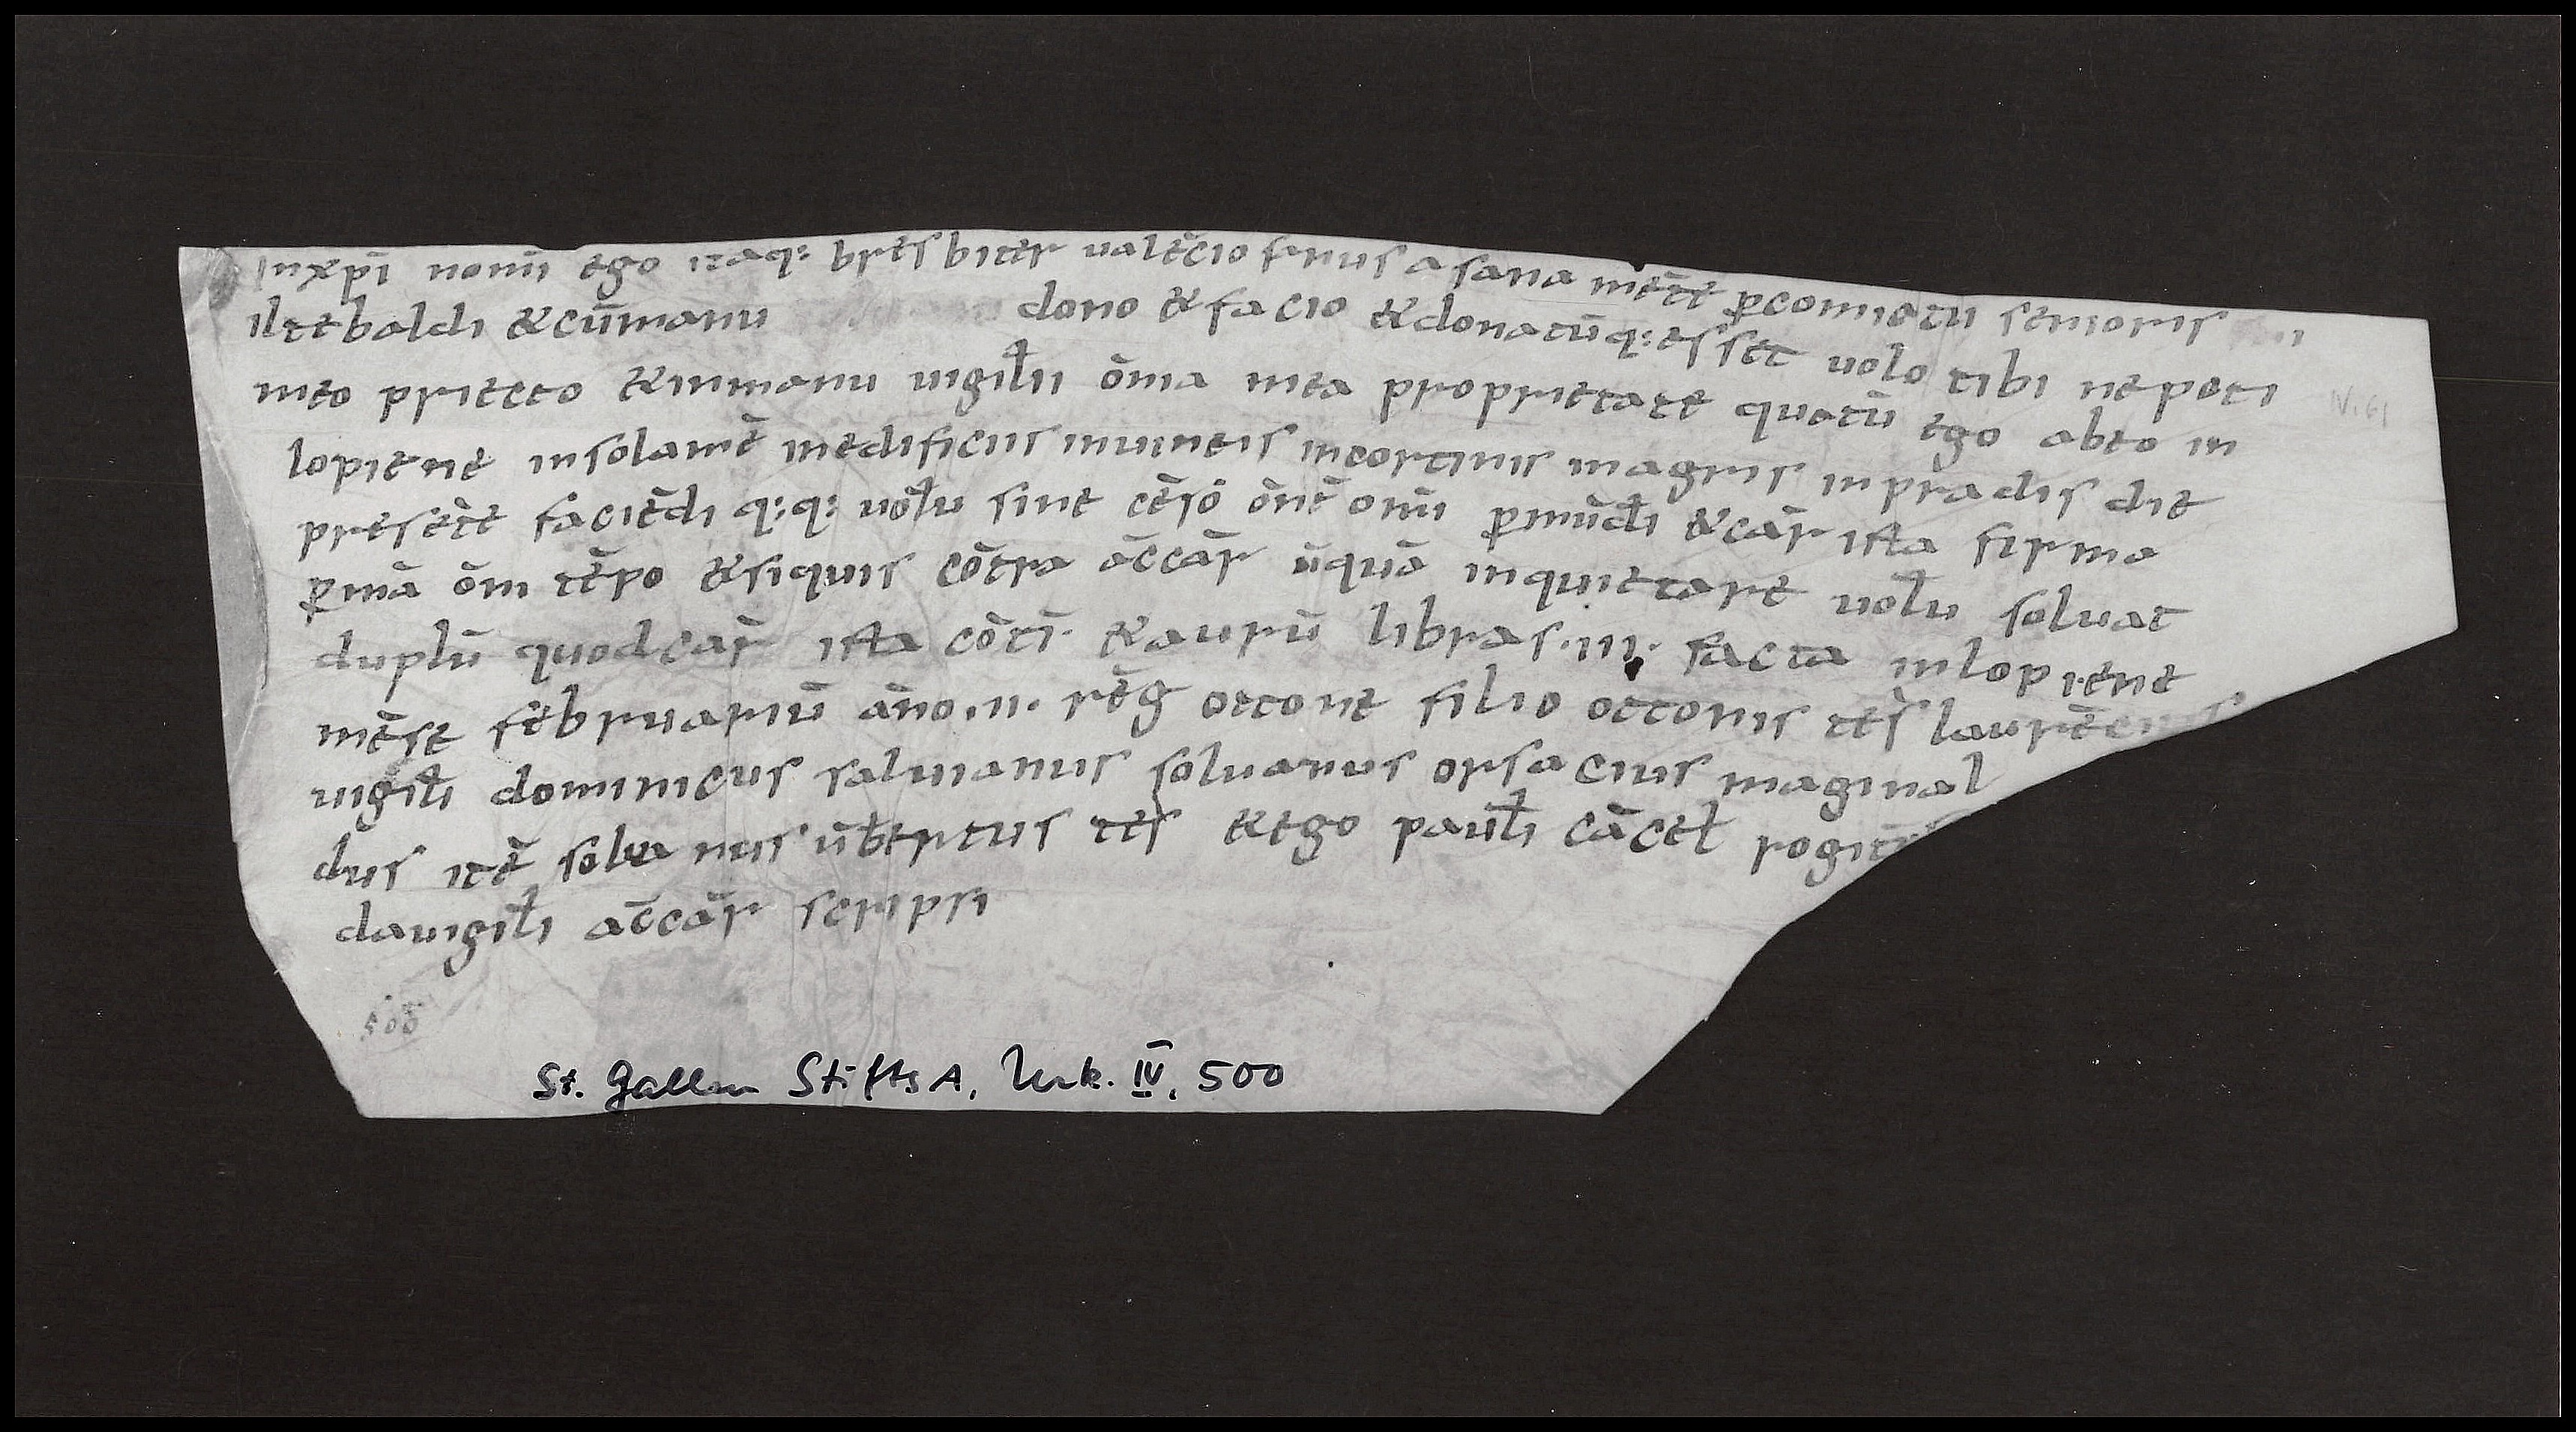 Inxpi nomī ego itaq: bresbiter ualēcio fanus a sana mēte ꝑcomiatu senioris
iltebaldi &cūmanu dono &facio &donatūq: esset uolo tibi nepoti
meo priecto &inmanu uigilii ōma mea proprietate quatū ego abeo in
lopiene insolamē inedificiis inuineis incortinis inagris inpradis die
presēte faciēdi q:q: uolu sine cēso ōnē omi ꝑmūdi &cār ista firma
ꝑmā ōm tēpo &siquis cōtra āccār ūquā inquietare uolu soluat
duplū quodcār ista cōti· &aurū libras·iii· facta inlopiene
mēse februariū āno·ii· rēg ottone filio ottonis tes laurēcius
uigili dominicus saluianus soluanus orsacius maginal
dus itē soluanus ūbertus tes &ego pauli cācel rogit
dauigili accār scripsi
500
IV.61
St. Gallen StiftsA. Urk. IV, 500